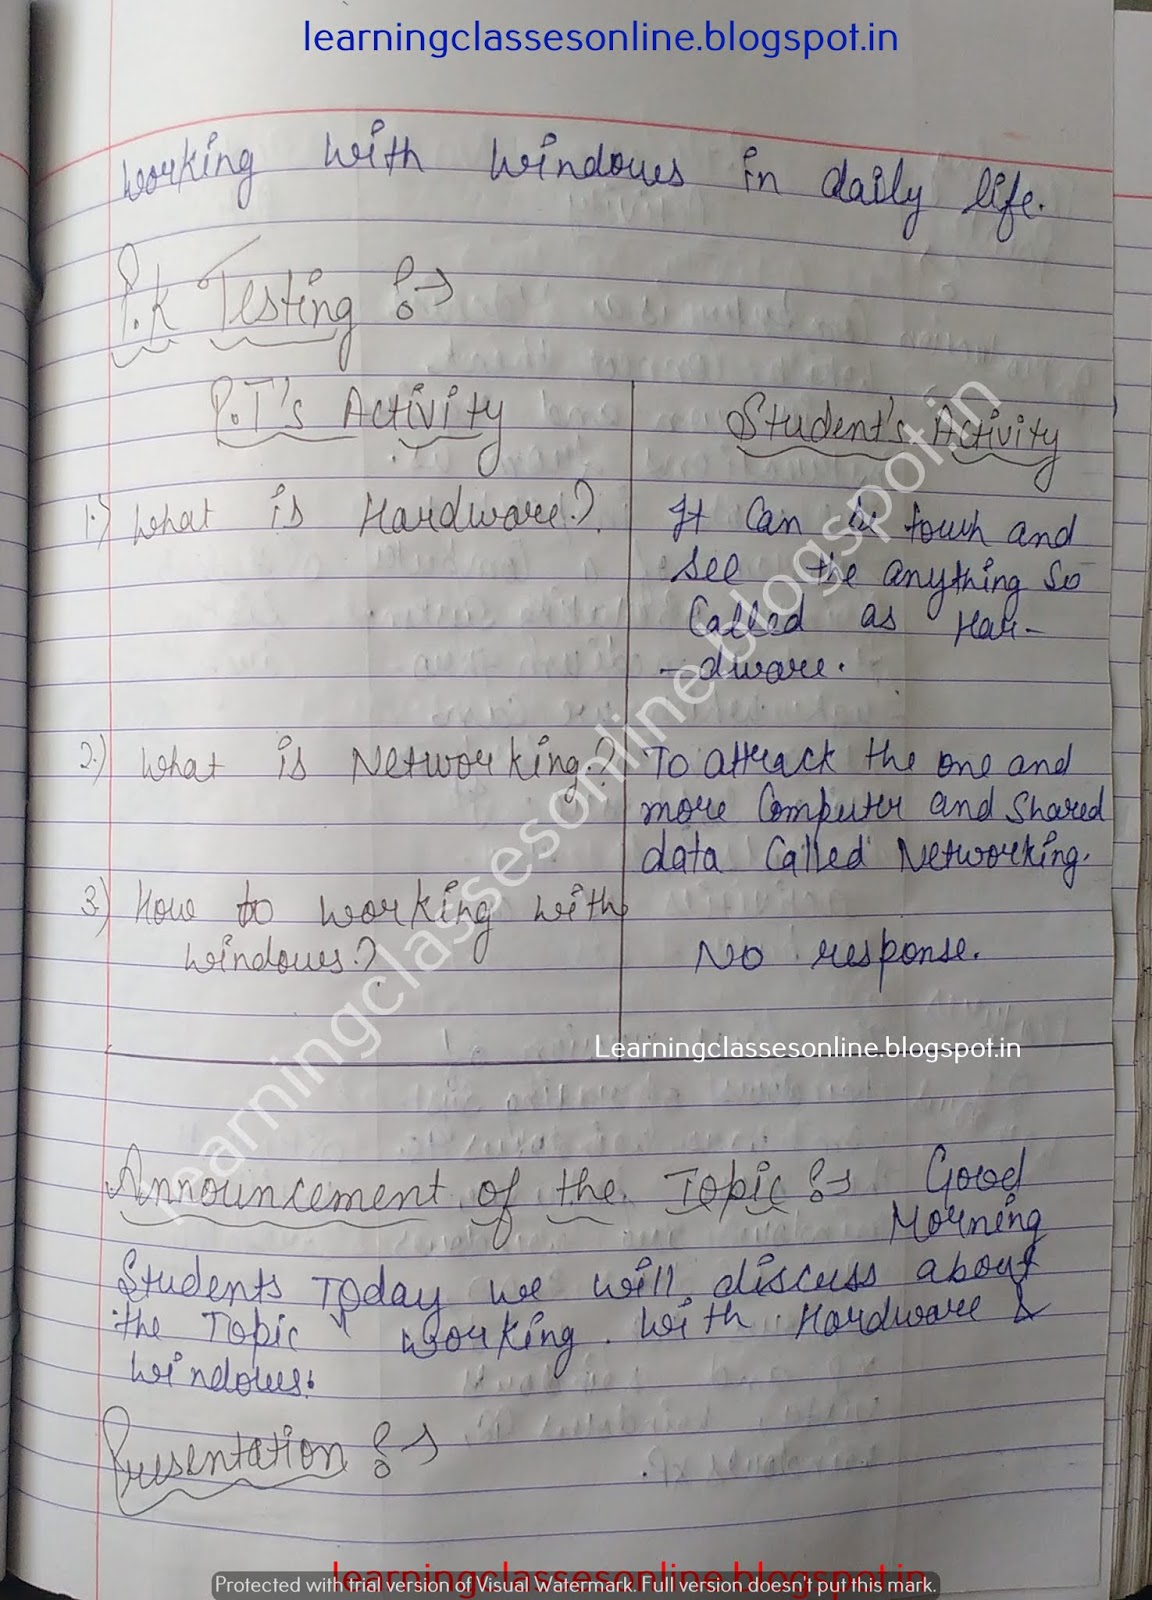 learningclassesonline.blogspot.in
working with windows in daily life.
P.K Testing :→
P.T's Activity
Student's Activity
1.) What is Hardware?
It Can be touch and
see the anything so
Called as Har-
-dware.
2.) What is Networking.?
To attrack the one and
more Computer and Shared
data Called Networking.
3.) How to working with
windows?
No response.
Learningclassesonline.blogspot.in
learningclassesonline.blogspot.in
Announcement of the Topic :→ Good
Morning
Students Today we will discuss about
the Topic " working with Hardware &
windows.
Presentation :→
learningclassesonline.blogspot.in
Protected with trial version of Visual Watermark. Full version doesn't put this mark.